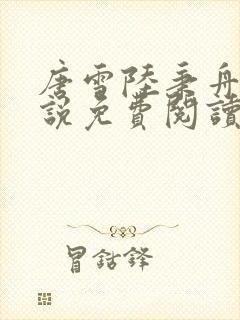 唐雪陸秉舟
說免費閱讀
冒鈷鋒